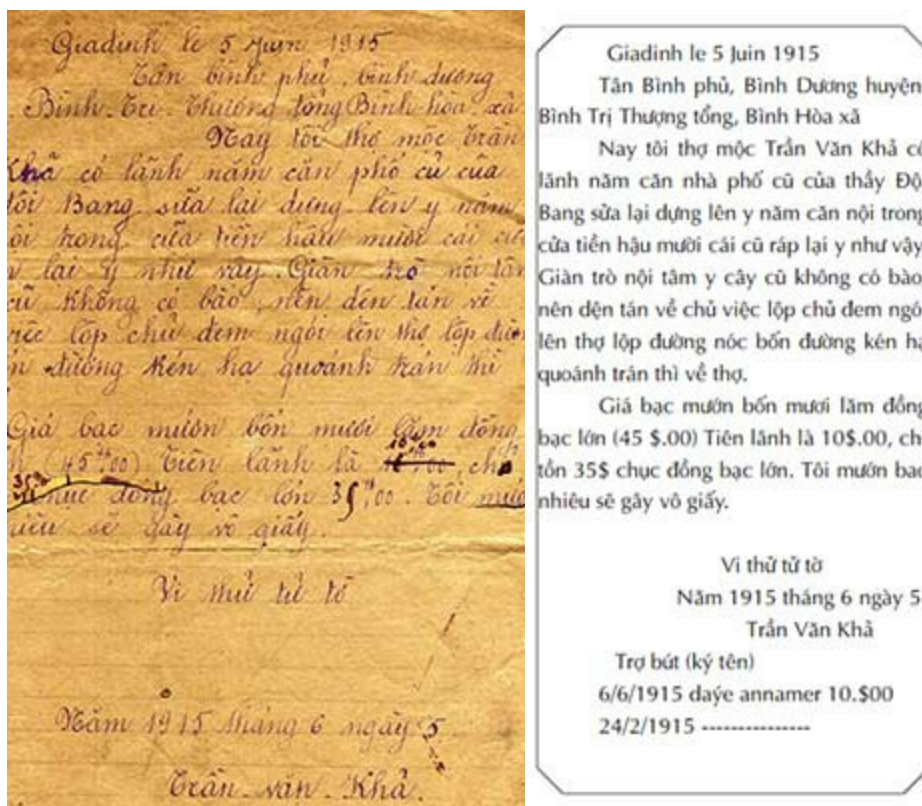 Giadinh le 5 Juin 1915
Tân bình phủ. bình dương
Bình. Trị. Thượng tổng Bình hòa. xã
Nay tôi thợ mộc Trần
Khả có lãnh năm căn phố củ của
đội Bang sửa lại dựng lên y năm
trong cửa tiền hậu mười cái
lại y như vậy. Giàn trò nội
củ không có bào, nên dên tán về
lớp chủ đem ngói lên thợ lớp
đường kén hạ quoánh trán thì
Giá bạc mướn bốn mươi lăm đồng
(45$00) Tiền lãnh là
đồng bạc lớn 35$00. Tôi
sẽ gây vô giấy.
Vi thử tử tờ
Năm 1915 tháng 6 ngày 5
Trần văn Khả.
Giadinh le 5 Juin 1915
Tân Bình phủ, Bình Dương huyện
Bình Trị Thượng tổng, Bình Hòa xã
Nay tôi thợ mộc Trần Văn Khả có
lãnh năm căn nhà phố cũ của thầy Độ
Bang sửa lại dựng lên y năm căn nội trong
cửa tiền hậu mười cái cũ ráp lại y như vậy
Giàn trò nội tâm y cây cũ không có bào
nên dện tán về chủ việc lộp chủ đem ngó
lên thợ lộp đường nóc bốn đường kén hạ
quoánh trán thì về thợ.
Giá bạc mướn bốn mươi lăm đồng
bạc lớn (45 $.00) Tiên lãnh là 10$.00, ch
tồn 35$ chục đồng bạc lớn. Tôi mướn bao
nhiêu sẽ gây vô giấy.
Vi thử tử tờ
Năm 1915 tháng 6 ngày 5
Trần Văn Khả
Trợ bút (ký tên)
6/6/1915 daýe annamer 10.$00
24/2/1915 ---------------